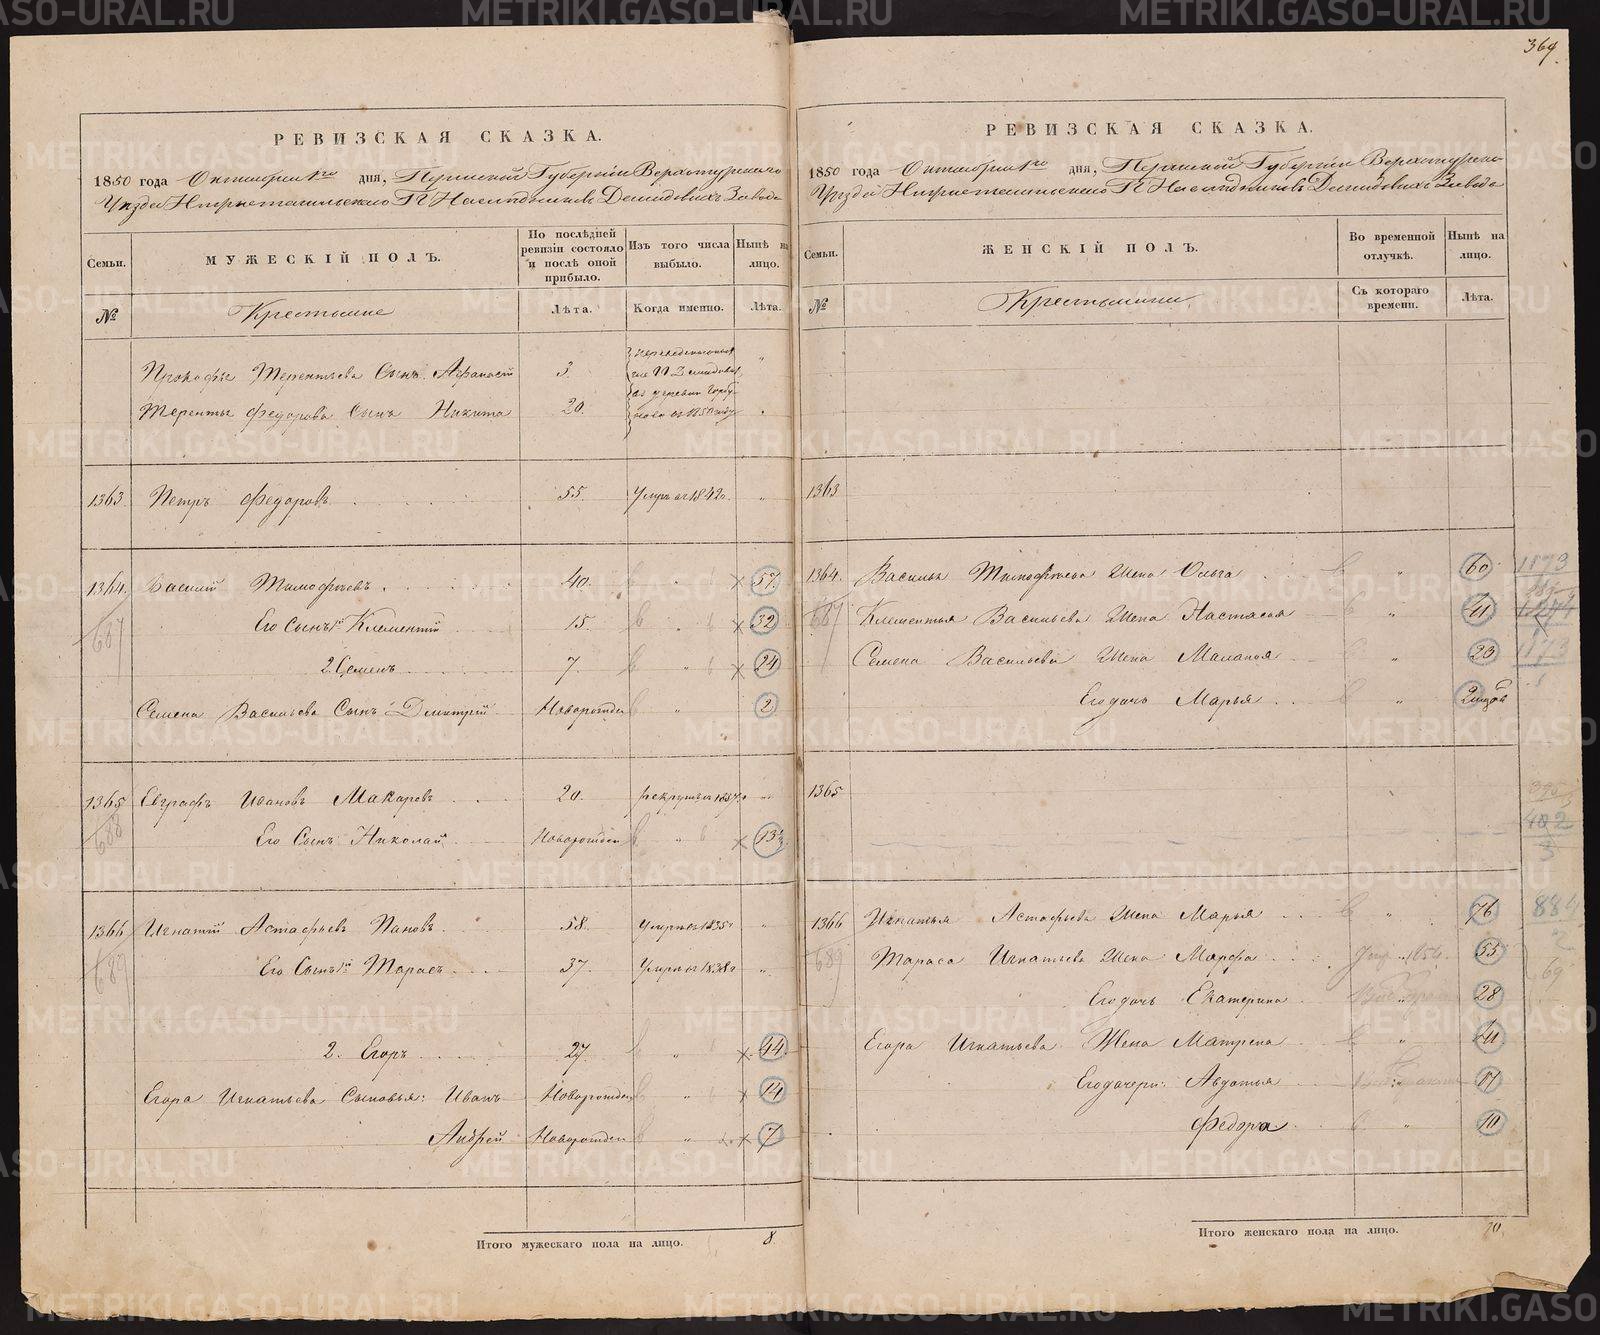 369.
РЕВИЗСКАЯ СКАЗКА.
1850 года Октября 1го дня, Пермской Губернiи Верхотурскаго
Уѣзда Нижнетагильскаго Гг Наслѣдниковъ Демидовыхъ Завода
Семьи.
МУЖЕСКIЙ ПОЛЪ.
По послѣдней ревизiи состояло и послѣ оной прибыло.
Изъ того числа выбыло.
Нынѣ на лицо.
№
Крестьяне
Лѣта.
Когда именно.
Лѣта.
Прокофья Терентьева Сынъ Афанасiй 3. "
Терентья Федорова Сынъ Никита 20.
1363 Петръ Федоровъ 55. Умеръ въ 1842г. "
1364. Василiй Тимофѣевъ 40. " 57
687
Его Сынъ 1й Клементiй 15. " 32
2. Семенъ 7. " 24
Семена Васильева Сынъ Дмитрiй Новорожден " 2
1365 Евграфъ Ивановъ Макаровъ 20. "
688
Его Сынъ Николай Новорожден " 13½
1366 Игнатiй Астафьевъ Пановъ 58. Умеръ въ 1835г "
689
Его Сынъ 1й Тарасъ 37. Умеръ въ 1838г "
2. Егоръ 27. " 44
Егора Игнатьева Сыновья: Иванъ Новорожден " 14
Андрей Новорожден " 7
Итого мужескаго пола на лицо. 8.
РЕВИЗСКАЯ СКАЗКА.
1850 года Октября 1го дня, Пермской Губернiи Верхотурскаго
Уѣзда Нижнетагильскаго Гг Наслѣдниковъ Демидовыхъ Завода
Семьи.
ЖЕНСКIЙ ПОЛЪ.
Во временной отлучкѣ.
Нынѣ на лицо.
№
Крестьянки
Съ котораго времени.
Лѣта.
1363
1364. Василья Тимофѣева Жена Ольга " 60
687
Клементья Васильева Жена Настасья " 41
Семена Васильева Жена Маланья " 23
Его дочь Марья " 2 мѣся
1365
1366 Игнатья Астафьева Жена Марья " 76
689
Тараса Игнатьева Жена Марфа 55
Его дочь Екатерина 28
Егора Игнатьева Жена Матрена " 41
Его дочери: Авдотья 17
Федора " 10
Итого женскаго пола на лицо. 10.
METRIKI.GASO-URAL.RU